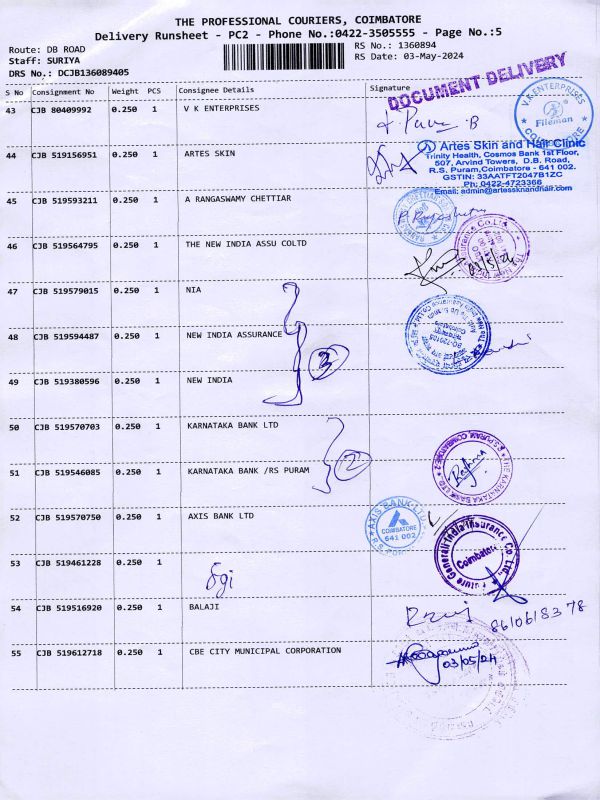 THE PROFESSIONAL COURIERS, COIMBATORE
Delivery Runsheet - PC2 - Phone No.:0422-3505555 - Page No.:5
Route: DB ROAD
Staff: SURIYA
DRS No.: DCJB136089405
RS No.: 1360894
RS Date: 03-May-2024
S No Consignment No Weight PCS Consignee Details Signature
DOCUMENT DELIVERY
43 CJB 80409992 0.250 1 V K ENTERPRISES
V.K ENTERPRISES
Fileman
COIMBATORE
44 CJB 519156951 0.250 1 ARTES SKIN
Artes Skin and Hair Clinic
Trinity Health, Cosmos Bank 1st Floor,
507, Arvind Towers, D.B. Road,
R.S. Puram,Coimbatore - 641 002.
GSTIN: 33AATFT2047B1ZC
Ph: 0422-4723366
Email: admin@artesskinandhair.com
45 CJB 519593211 0.250 1 A RANGASWAMY CHETTIAR
46 CJB 519564795 0.250 1 THE NEW INDIA ASSU COLTD
47 CJB 519579015 0.250 1 NIA
48 CJB 519594487 0.250 1 NEW INDIA ASSURANCE
3
49 CJB 519380596 0.250 1 NEW INDIA
50 CJB 519570703 0.250 1 KARNATAKA BANK LTD
2
51 CJB 519546085 0.250 1 KARNATAKA BANK /RS PURAM
THE KARNATAKA BANK LTD.
R.S.PURAM, COIMBATORE-2
52 CJB 519570750 0.250 1 AXIS BANK LTD
AXIS BANK LTD
COIMBATORE
641 002
53 CJB 519461228 0.250 1 Fgi
Future Generali India Insurance Co. Ltd.
Coimbatore
54 CJB 519516920 0.250 1 BALAJI
8610618378
55 CJB 519612718 0.250 1 CBE CITY MUNICIPAL CORPORATION
03/05/24